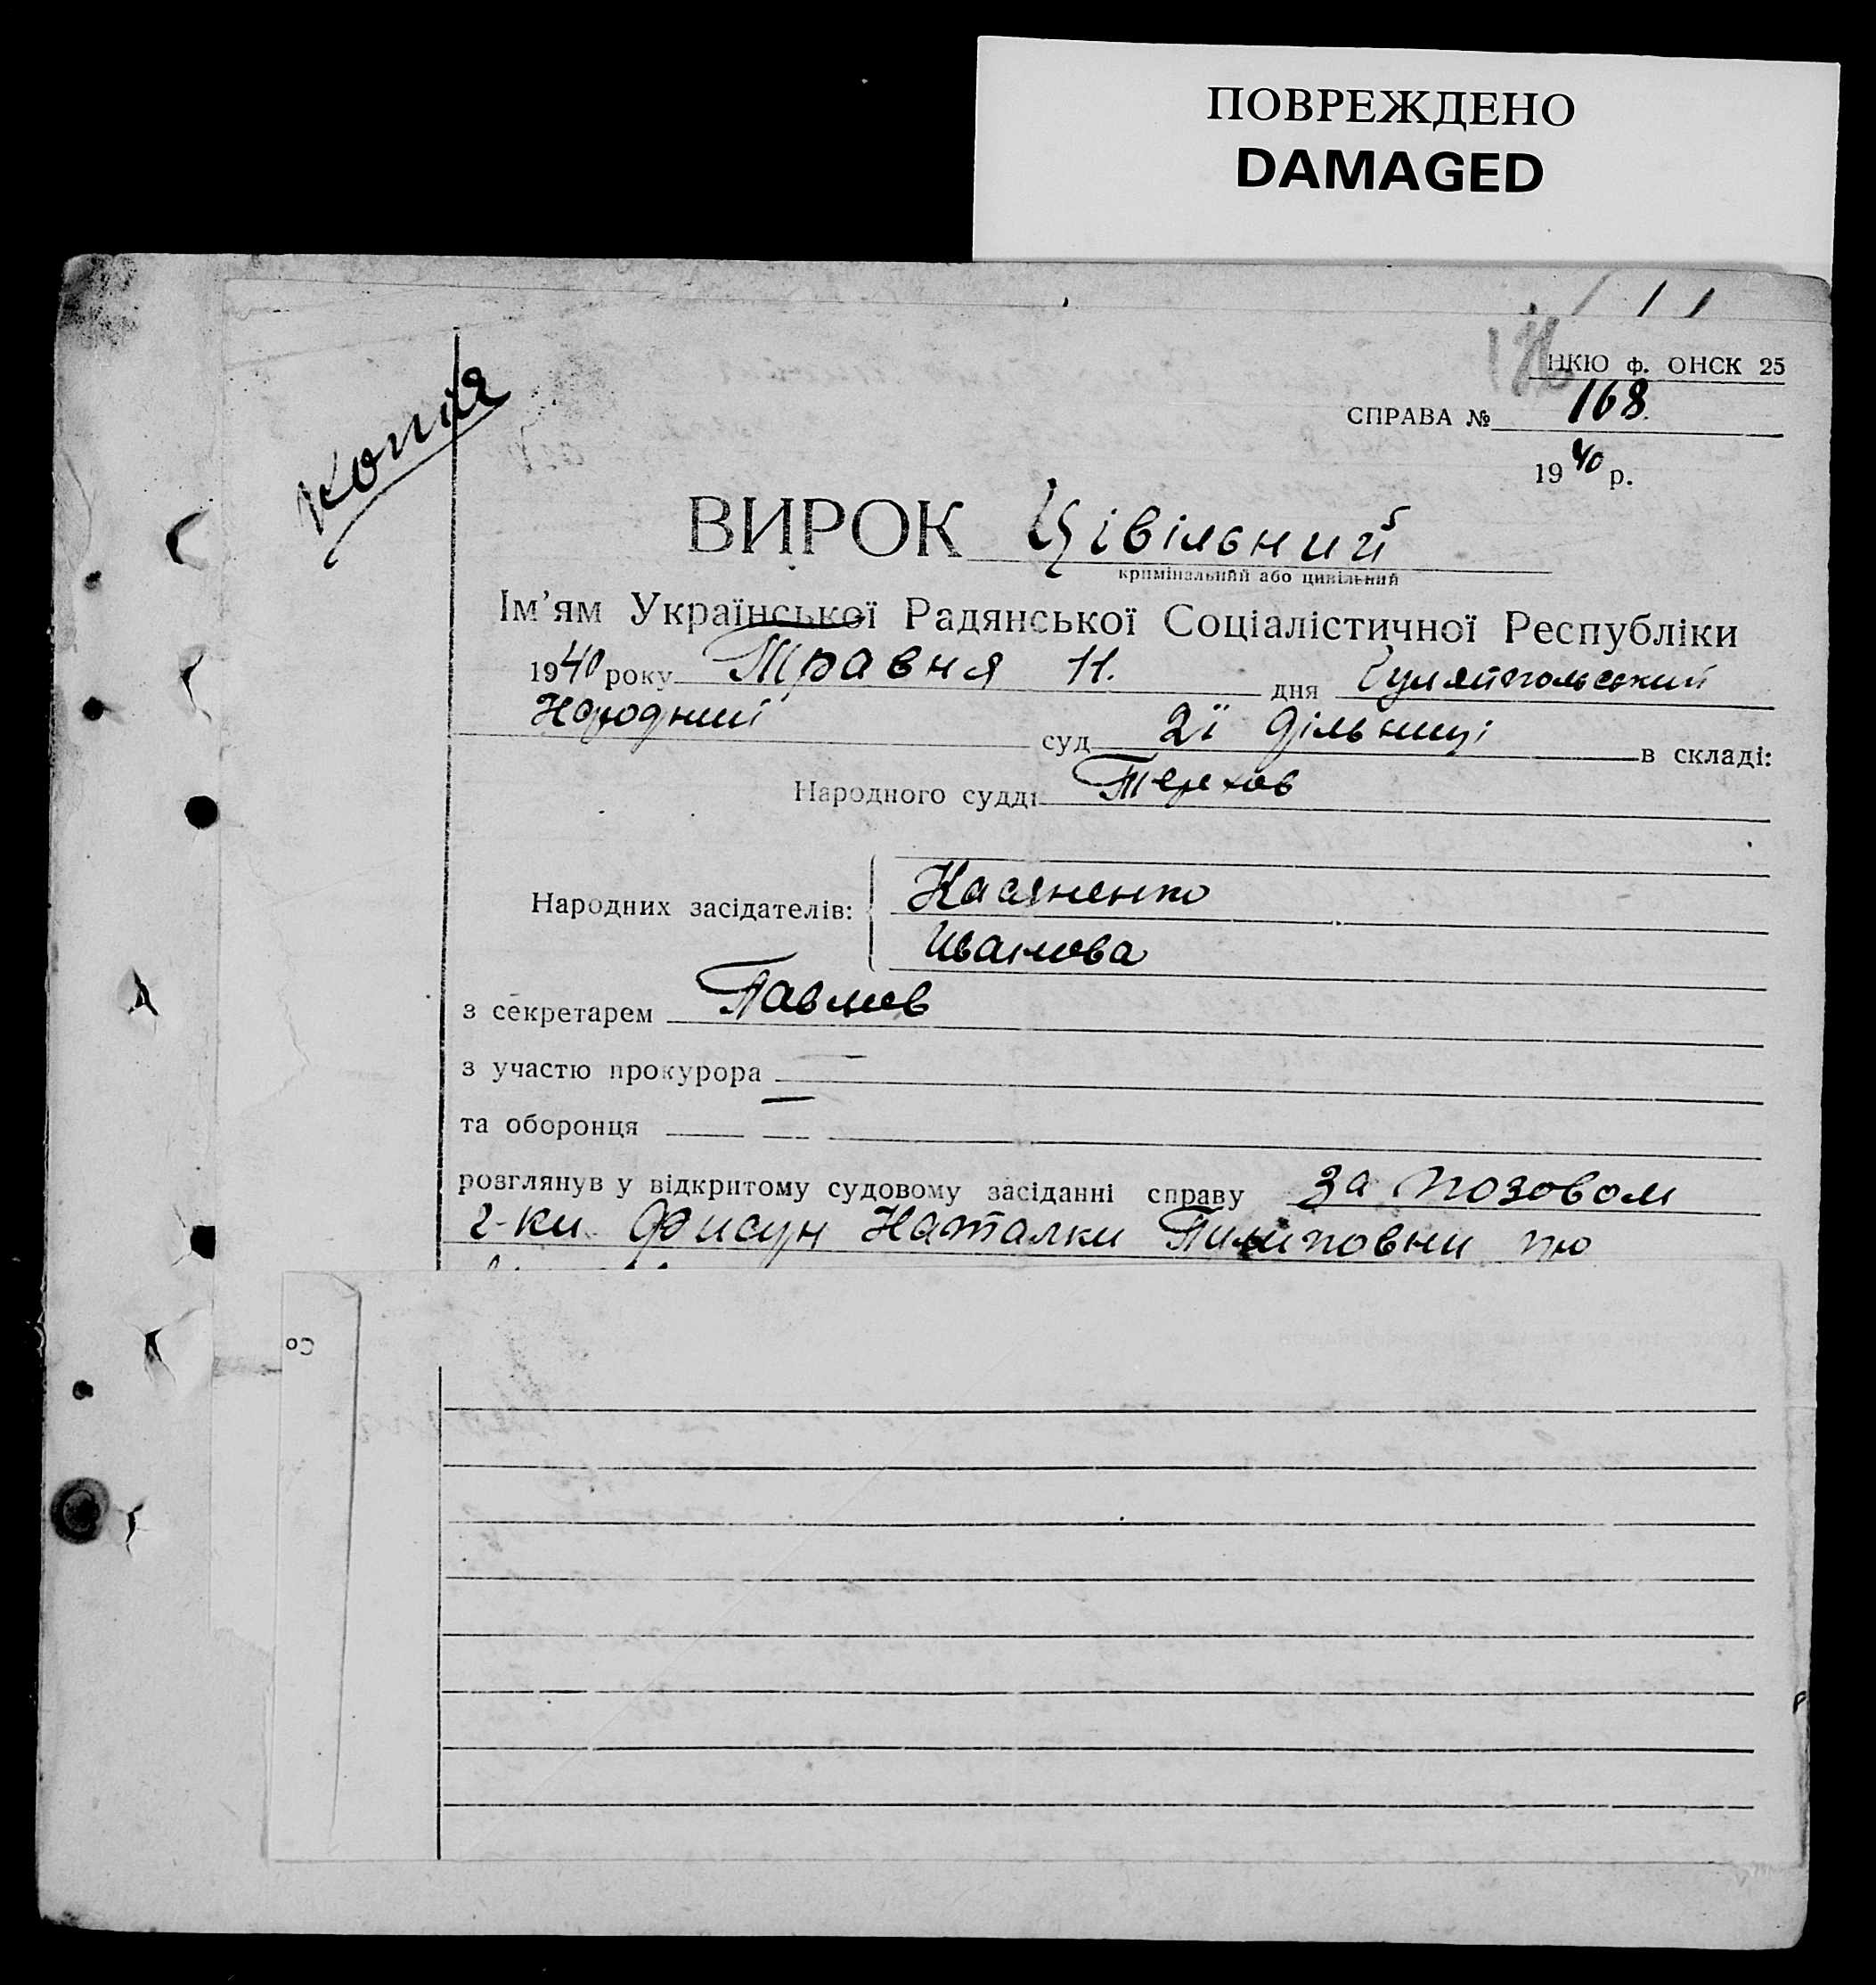 ПОВРЕЖДЕНО
DAMAGED
НКЮ ф. ОНСК 25
Копия
СПРАВА № 168
1940 р.
ВИРОК Цівільний
кримінальний або цивільний
Ім’ям Української Радянської Соціалістичної Республіки
1940 року Травня 11. дня Гуляйпольський
Народний суд 2ї дільниці в складі:
Народного судді Терехов
Народних засідателів: Касяненко
Иванова
з секретарем Павлов
з участю прокурора —
та оборонця —
розглянув у відкритому судовому засіданні справу за позовом
г-ки Фисун Наталки Пилиповни про
Со